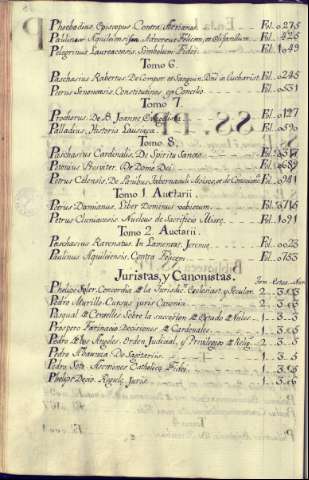 P
Phebadius, Episcopus Contra Arrianos. Fol. 0275
Paulinus Aquileiensis Adversus Felicem, et Elipandum Fol. 425
Pelegrinus Laureacensis. Simbolum Fidei Fol. 1049
Tomo 6.
Paschasius Robertus, De Corpore et Sanguine, Dni in Eucharist. Fol. 0245
Petrus Senonensis, Constitutiones, in Concilio Fol. 0531
Tomo 7.
Prochorus, De B. Joanne Fol. 0127
Palladius, Historia Lausiaca Fol. 0590
Tomo 8.
Paschasius Cardinalis, De Spiritu Sancto Fol.
Presviter. De Domo Dei Fol.
Petrus Celensis, De Panibus, Tabernaculo Moises, et de Conciencia Fol. 0941
Tomo 1. Auctarii.
Petrus Damianus, Liber Dominus vobiscum Fol. 0715
Petrus Cluniacensis Nucleus de Sacrificio Misæ Fol. 1091
Tomo 2. Auctarii.
Paschasius Ravenatus. In Lamentat. Jeremie Fol. 0023
Paulinus Aquileiensis, Contra Felicem Fol. 0753
Juristas, y Canonistas.
Tom. Estan. Num.
Phelipe Soler, Concordia de la Jurisdic. Eclesiast. y Secular 2 3 05
Pedro Murillo Cursus juris Canonici 2 3 05
Pasqual de Cervelles Sobre la sucesion de Estado de Velez 1 3
Prospero Farinacio Decisiones de Cardenales 1 3 05
Pedro de los Angeles. Orden Judicial, y Privilegios de Relig. 2 3 5
Pedro Abaunza De Sagitariis 1 3 5
Pedro Soto Hermines Catholicæ Fidei 1 3 05
Phelipe Decio. Regulæ Juris 1 3 06